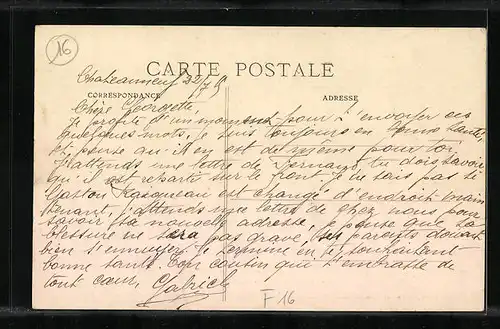 16
CARTE POSTALE
Chateauneuf
CORRESPONDANCE
ADRESSE
Chère Georgette,
Je profite d'un moment pour t'envoyer ces
quelques mots, je suis toujours en bonne santé,
et pense qu'il en est de même pour toi,
J'attends une lettre de Fernand, tu dois savoir
qu'il est reparti sur le front je ne sais pas si
Gaston est changé d'endroit main
tenant, j'attends une lettre de chez nous pour
savoir sa nouvelle adresse, je pense que sa
blessure ne sera pas grave, ses parents doivent
bien s'ennuyer. Je termine en te souhaitant
bonne santé. Ton cousin qui t'embrasse de
tout cœur, Gabriel
F 16